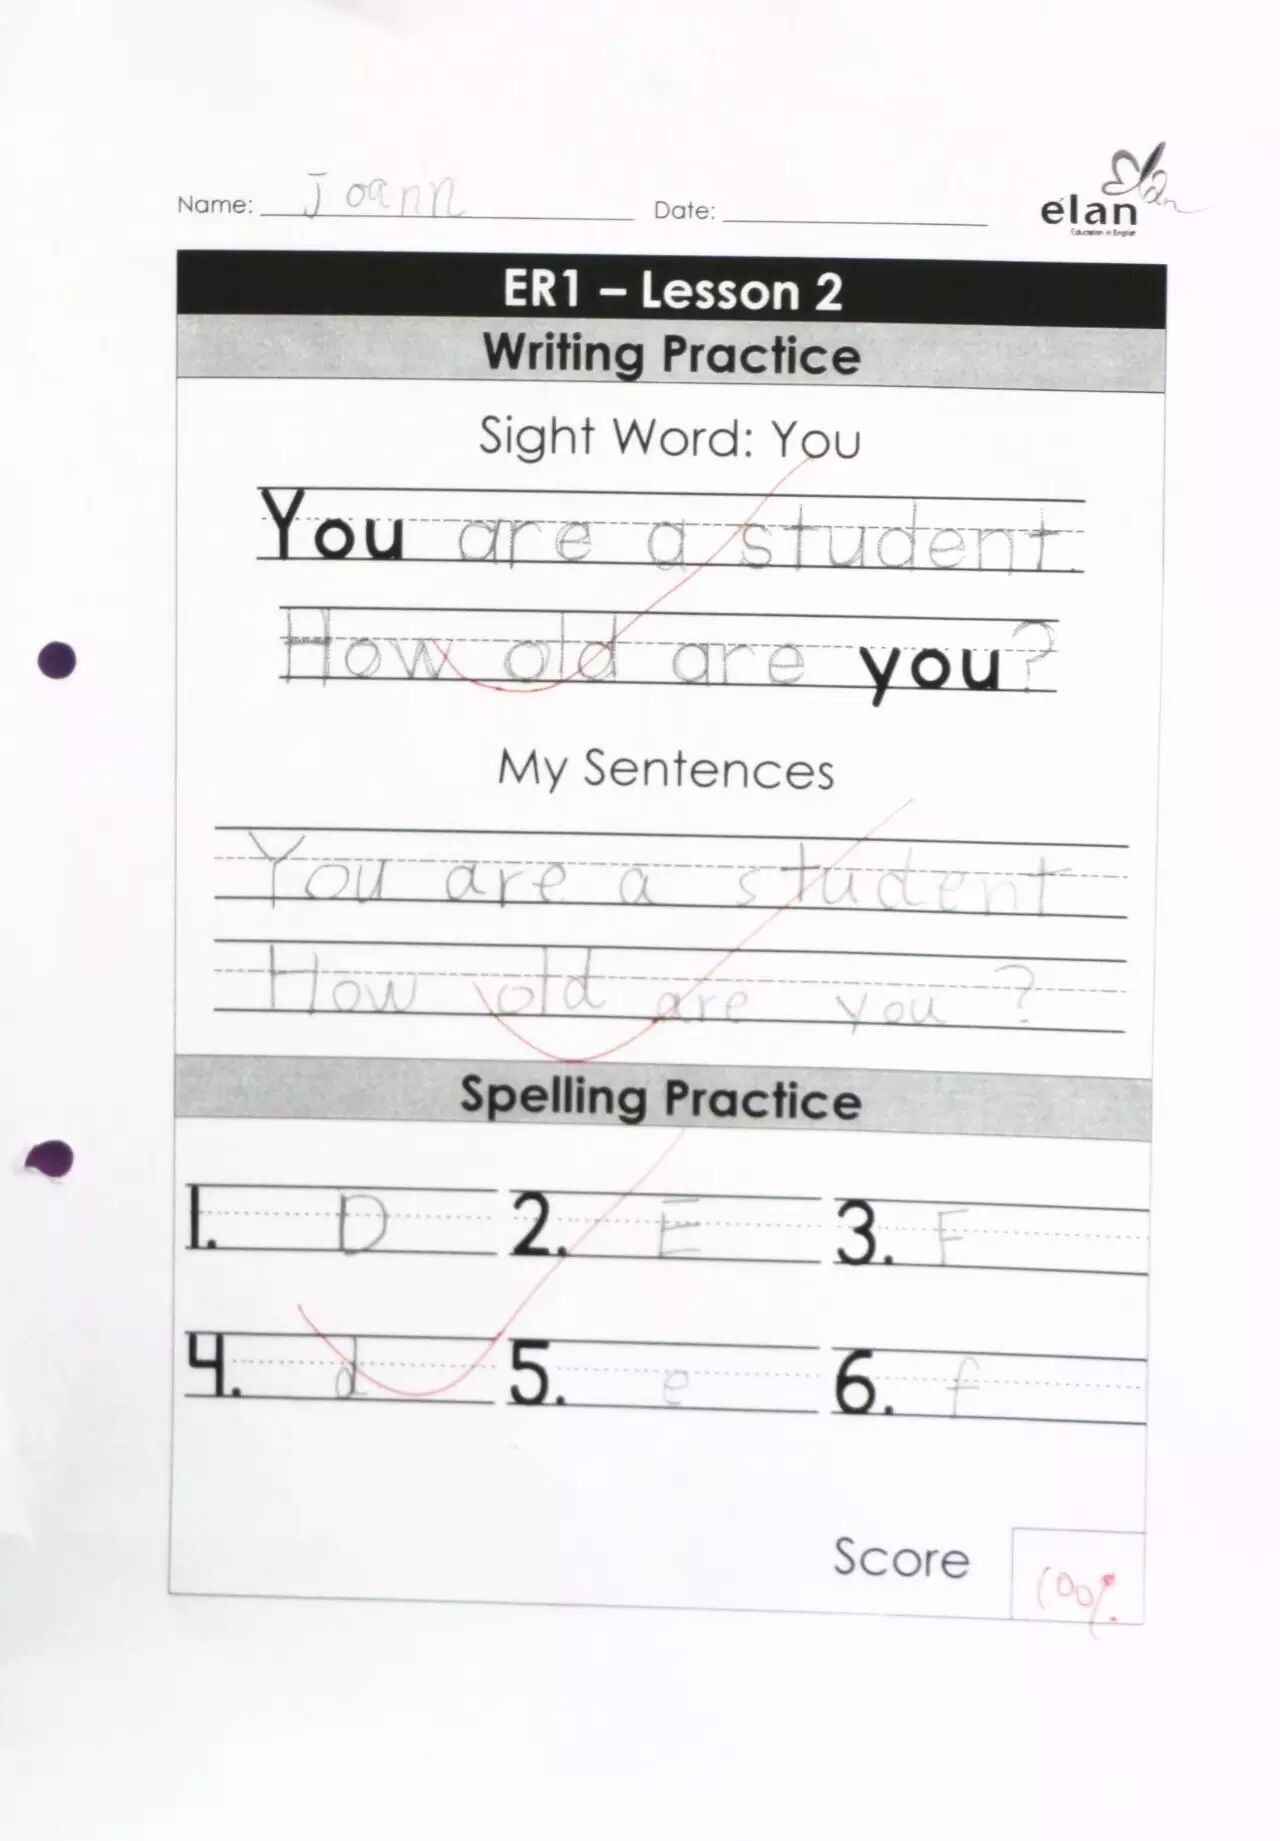 Name: Joann Date: élan
Education in English
ER1 – Lesson 2
Writing Practice
Sight Word: You
You are a student.
How old are you?
My Sentences
You are a student
How old are you ?
Spelling Practice
1. D 2. E 3. F
4. d 5. e 6. f
Score 100%